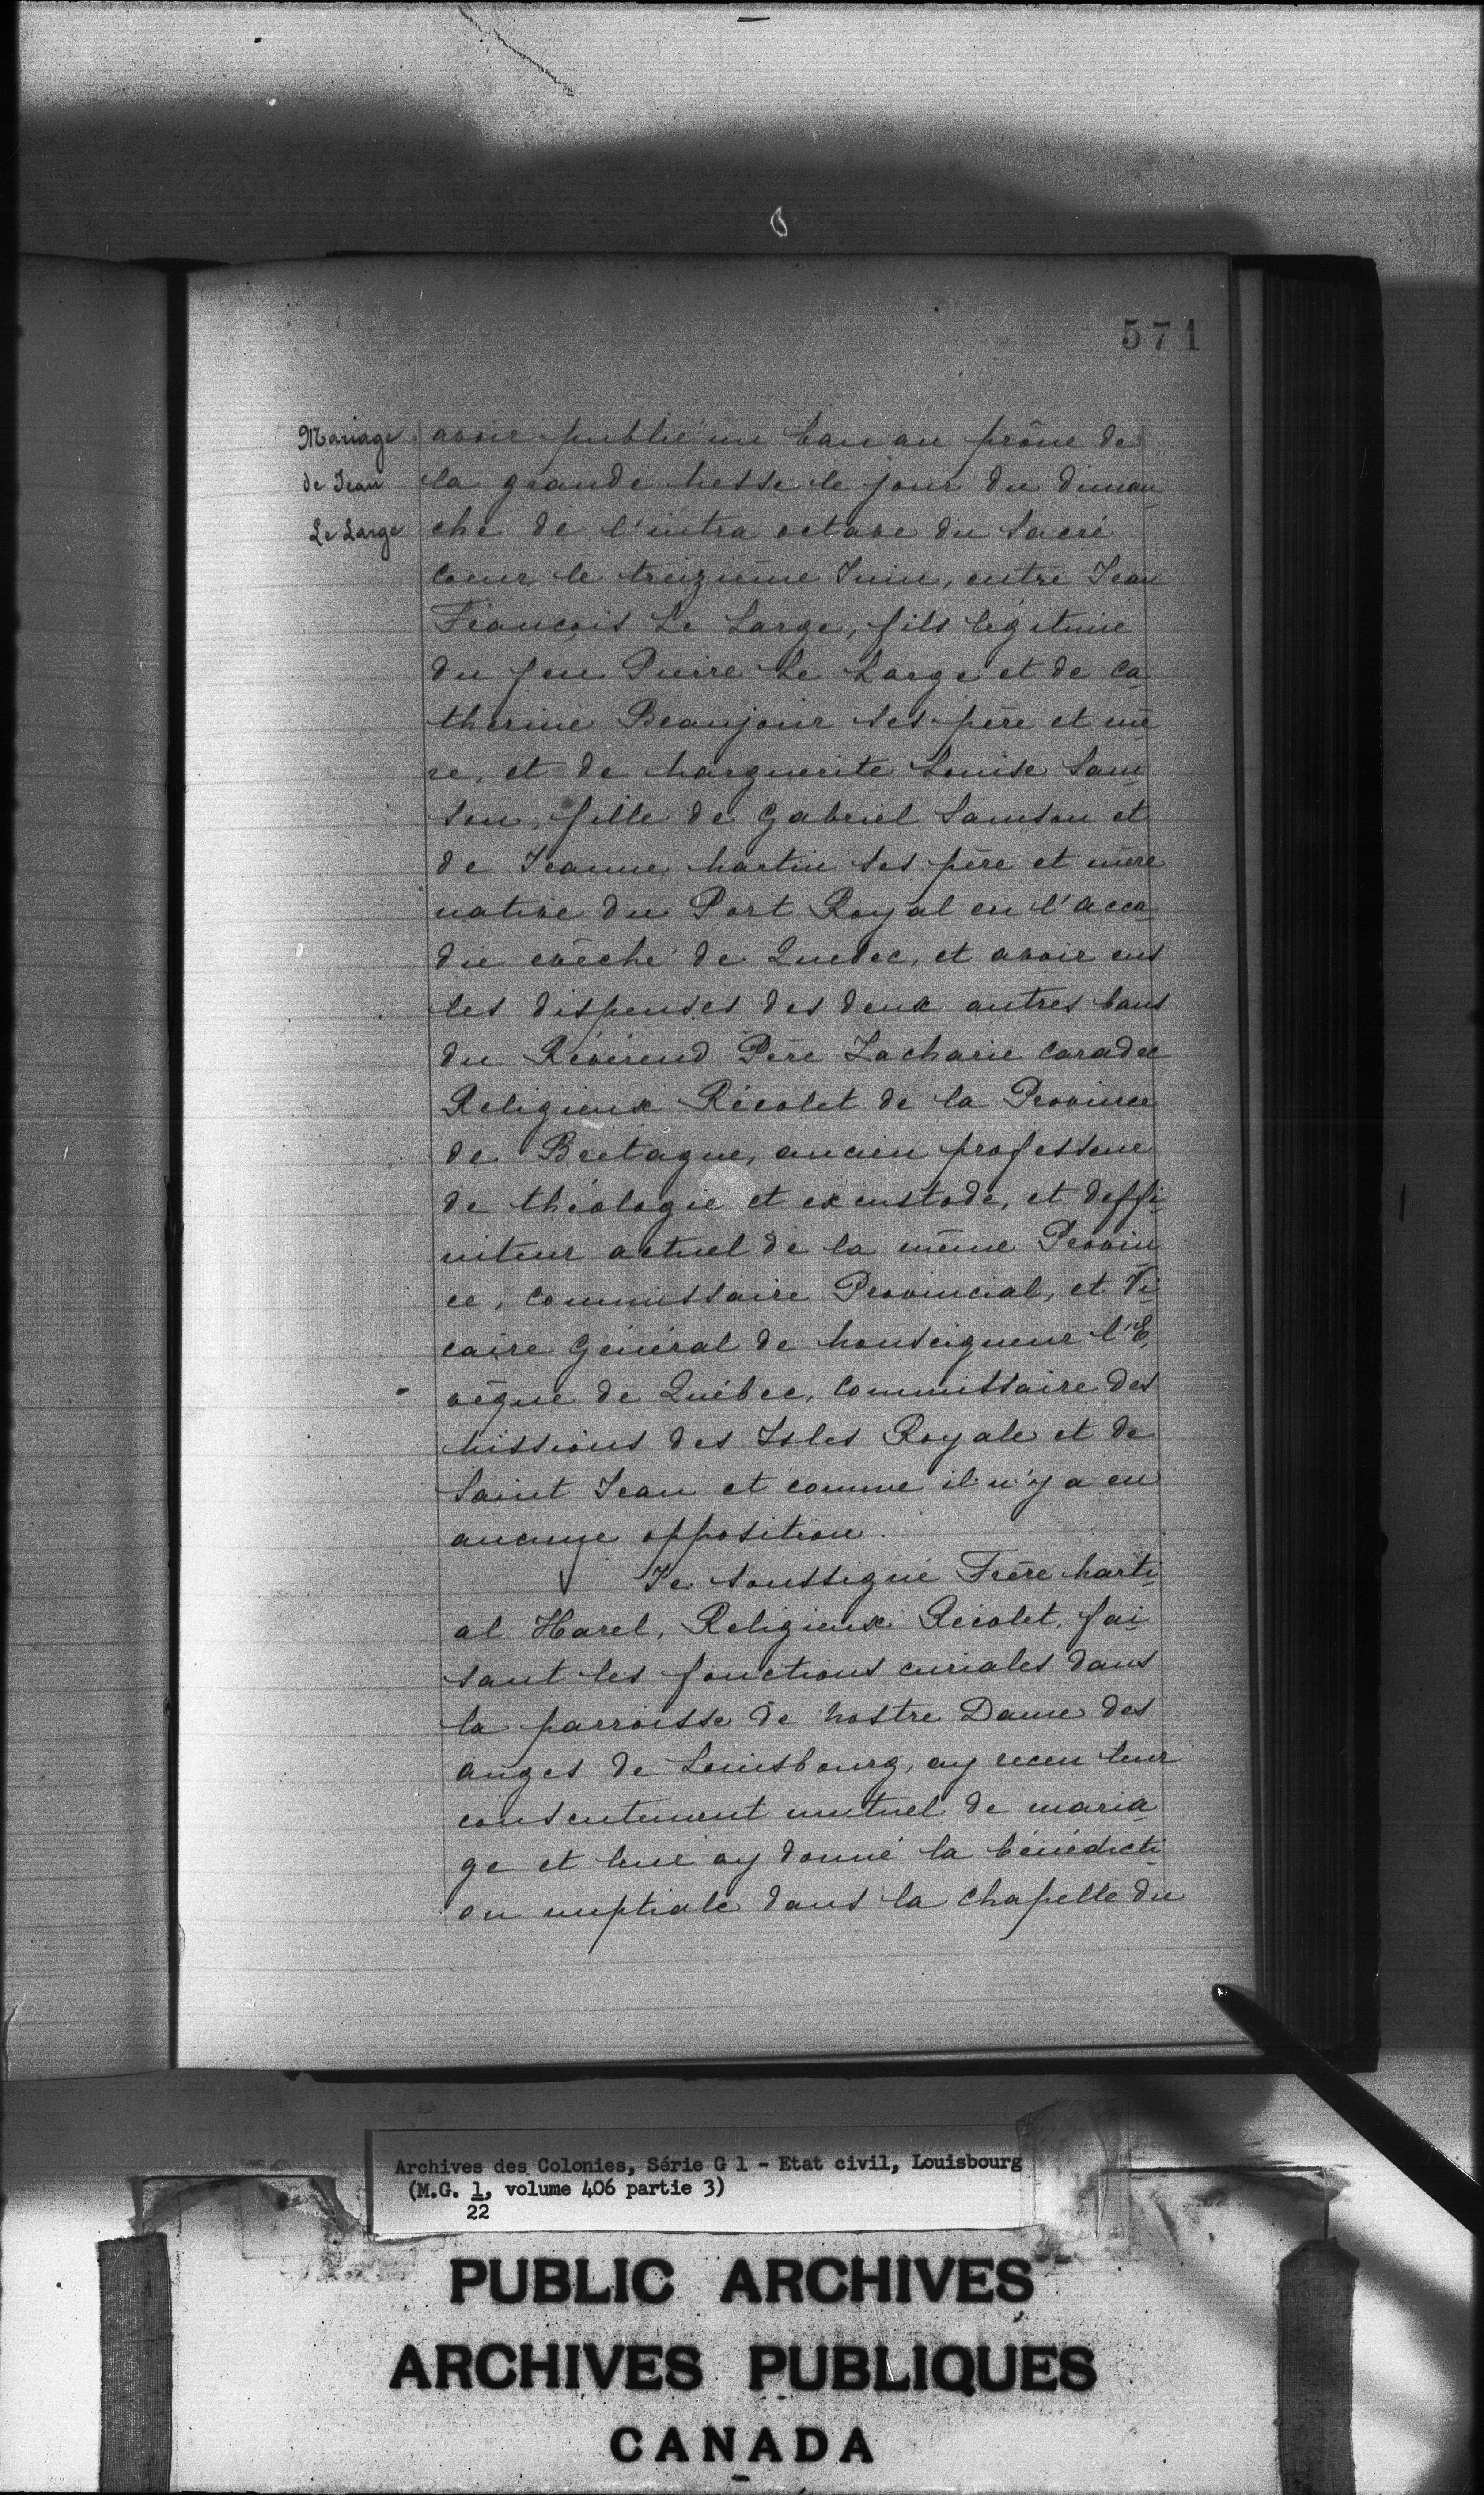 571
Mariage
de Jean
Le Large
avoir publié un ban au prône de
la grande Messe le jour du diman
che de l'intra octave du Sacré
Coeur le treizième Juin, entre Jean
François Le Large, fils légitime
du feu Pierre Le Large et de Ca
therine Beaujour ses père et mè
re, et de Marguerite Louise Sam
son, fille de Gabriel Samson et
de Jeanne Martin ses père et mère
native du Port Royal en l'Acca
die evêché de Quebec, et avoir eus
les dispenses des deux autres bans
du Révérend Père Zacharie Caradec
Religieux Récolet de la Province
de Bretagne, ancien professeur
de théologie et ex custode, et deffi
niteur actuel de la même Provin
ce, Commissaire Provincial, et Vi
caire Général de Monseigneur l'E
vêque de Québec, Commissaire des
Missions des Isles Royale et de
Saint Jean et comme il n'y a eu
aucune opposition.
Je soussigné Frère Marti
al Harel, Religieux Récolet, fai
sant les fonctions curiales dans
la parroisse de Nostre Dame des
Anges de Louisbourg, ay receu leur
consentement mutuel de maria
ge et leur ay donné la bénédicti
on nuptiale dans la Chapelle du
Archives des Colonies, Série G 1 - Etat civil, Louisbourg
(M.G. 1, volume 406 partie 3)
22
PUBLIC ARCHIVES
ARCHIVES PUBLIQUES
CANADA